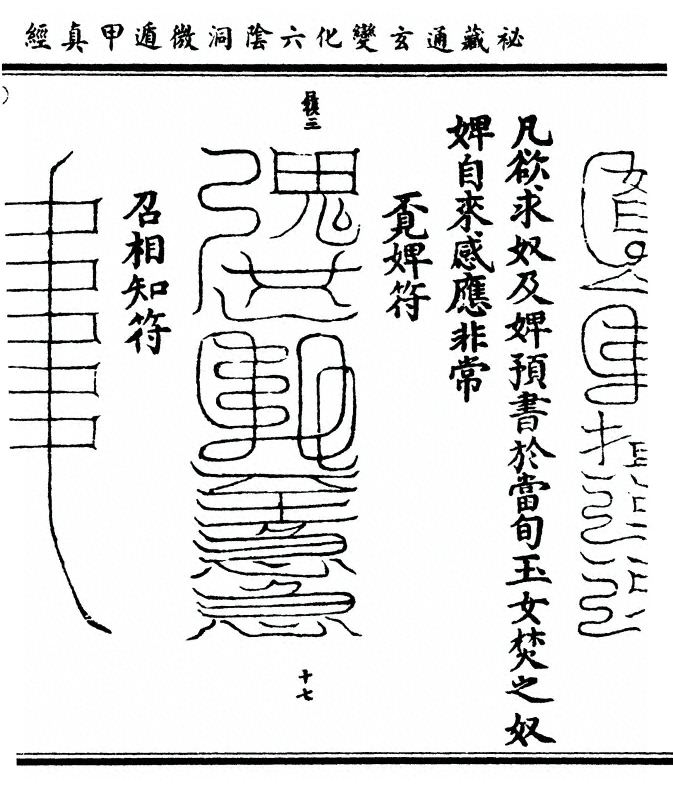 祕藏通玄變化六陰洞微遁甲真經
凡欲求奴及婢預書於當旬玉女焚之奴
婢自來感應非常
覔婢符
三
十七
召相知符